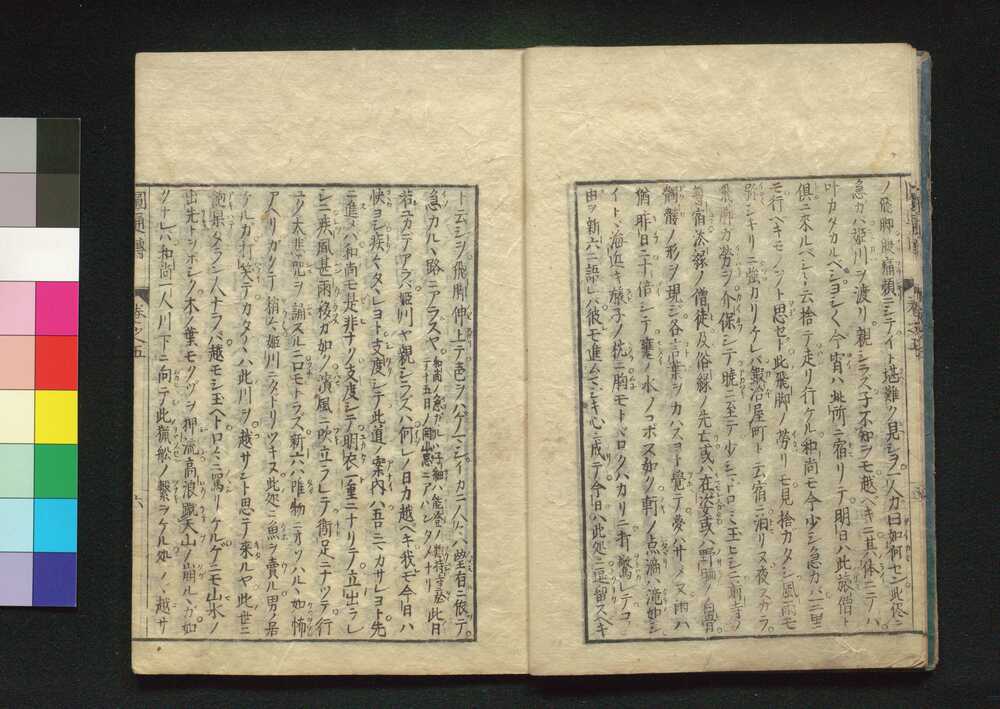 ノ飛脚腰痛頻ニシテイト堪難ク見シラ二人カ曰如何セン此侭ニ
急カバ姫川ヲ渡リ親シラズ子不知ヲモ越ヘキニ其ノ体ニテハ
叶カタカルヘシヨシく今宵ハ此所ニ宿リテ明日ハ此旅僧ト
倶ニ来ルベシト云拾テ走リ行ケル和尚モ今少シ急カバ二里
モ行ヘキモノヲト思セド此飛脚ノ労リモ見捨カタシ風雨モ
弥シキリニ強カリケレバ鍛冶屋町ト云宿ニ泊リヌ夜スカラ
飛脚カ労ヲ介保シテ暁ニ至テ少シマドロミ玉ヒシニ
ノ僧徒及俗縁ノ先亡或ハ在姿或ハ
髑髏ノ形ヲ現シ各言葉ヲカハスヨト覚テ夢ハサメヌ雨ハ
猶昨日ニ十倍シテ甕ノ水ノコボスガ如ク軒ノ点滴ハ滝如シ
イトヾ海近キ旅子ノ枕ニ胸モトヾロクハカリニ打驚レテコノ
由ヲ新六ニ語レバ彼モ進ムマジキ心ニ成テ今日ハ此処ニ逗留スヘキ
圓通傳
巻之五
ト云シヲ飛脚仲上テ色ヲハゲマシイカニ人々ハ望有ニ依テ
急カルヽ路ニアラスヤ 和尚ノ急ガルヽ子細ハ能登ノ惣持寺ヘ此日
テ十五日ノ開山忌ニアハンタメナリ
若ユカデアラバ姫川ヤ親シラズハ何レノ日カ越ヘキ我モ今日ハ
快ヨシ疾々タヽレヨト支度シテ此道ノ案内ハ吾ニマカサレヨト先
ニ進メハ和尚モ是非ナク支度シテ明衣一重ニナリテ立出ラレ
シニ疾風甚雨後カガ如ク濱風ニ吹立ラレテ衛足ニナツテ行
ニ大悲咒ヲ誦スルニ口モトラズ新六ハ唯物ニオソハルヽ如怖
アヘリカクテ稍ク姫川ニタドリツキヌ此処ニ魚ヲ売ル男ノ居
ケルカ打笑テカタ〳〵ハ此川ヲ越サント思テ来ルヤ此世ニ
飽果タラン人ナラバ越モシ玉ヘトロ〳〵ニ罵リケルゲニモ山水ノ
出先トヲホシク木ノ葉モクヅヲ押流高浪蹴天山ノ崩ルヽカ如
クナレバ和尚一人川下ニ向テ此猟船ノ繋ヲケル処ノ越サ
圓通傳
巻之五
六